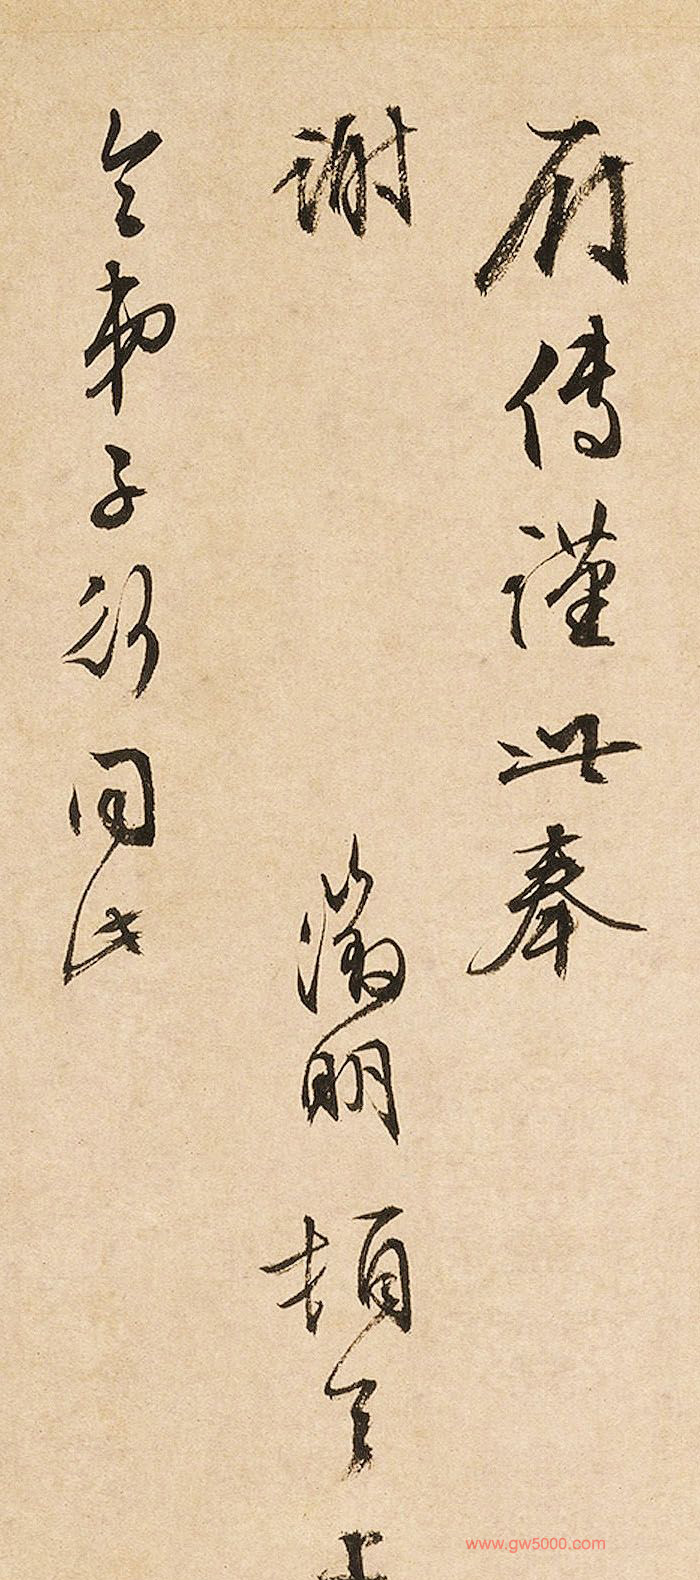 傳謹此奉
謝　徵明頓首
令弟子同此
www.gw5000.com